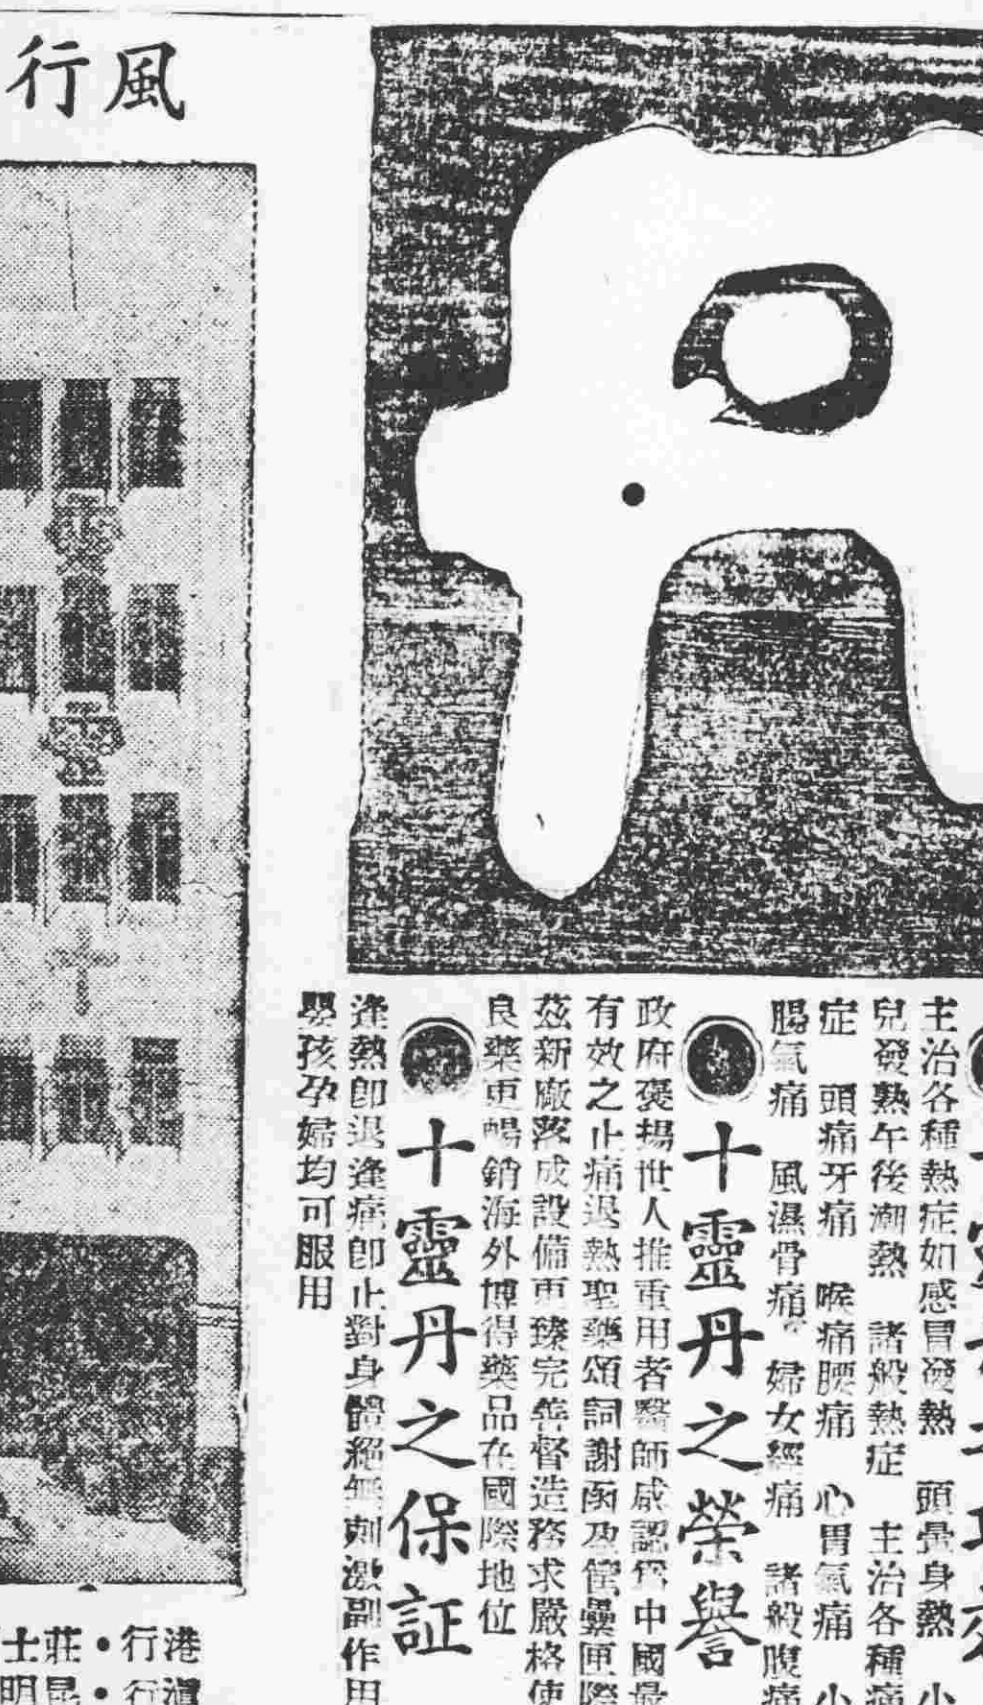 風行
靈
靈
十
主治各種熱症如感冒發熱　頭暈身熱　小
兒發熱午後潮熱　諸般熱症　主治各種
症　頭痛牙痛　喉痛腰痛　心胃氣痛　小
腸氣痛　風濕骨痛　婦女經痛　諸般腹痛
十靈丹之榮譽
政府褒揚世人推重用者醫師咸認為中國最
有效之止痛退熱聖藥頌詞謝函及舊纍匣際
茲新廠落成設備更臻完善督造務求嚴格使
良藥更暢銷海外博得藥品在國際地位
十靈丹之保証
逢熱卽退逢痛卽止對身體絕無刺激副作用
嬰孩孕婦均可服用
港行・莊士
行・昆明